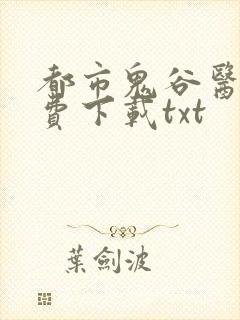 都市鬼谷醫
費下載txt
葉劍波